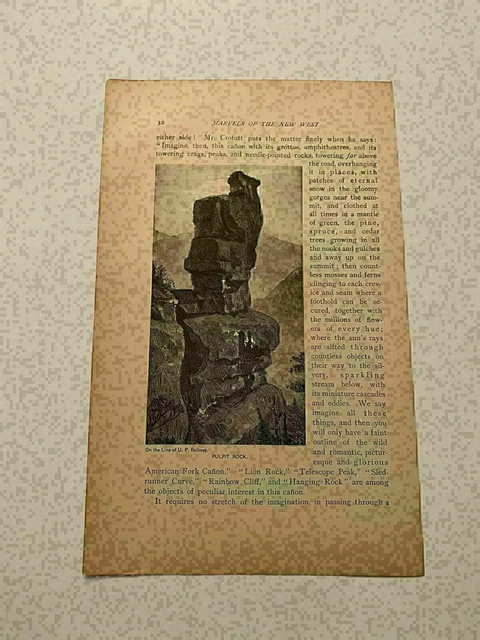 32 MARVELS OF THE NEW WEST
either side! Mr. Crofutt puts the matter finely when he says:
"Imagine, then, this cañon with its grottos, amphitheatres, and its
towering crags, peaks, and needle-pointed rocks, towering far above
the road, overhanging
it in places, with
patches of eternal
snow in the gloomy
gorges near the sum-
mit, and clothed at
all times in a mantle
of green, the pine,
spruce, and cedar
trees growing in all
the nooks and gulches
and away up on the
summit; then count-
less mosses and ferns
clinging to each crev-
ice and seam where a
foothold can be se-
cured, together with
the millions of flow-
ers of every hue;
where the sun's rays
are sifted through
countless objects on
their way to the sil-
very, sparkling
stream below, with
its miniature cascades
and eddies. We say
imagine all these
things, and then you
will only have a faint
outline of the wild
and romantic, pictur-
esque and glorious
On the Line of U. P. Railway.
PULPIT ROCK.
American Fork Cañon." "Lion Rock," "Telescope Peak," "Sled-
runner Curve," "Rainbow Cliff," and "Hanging Rock" are among
the objects of peculiar interest in this cañon.
It requires no stretch of the imagination, in passing through a